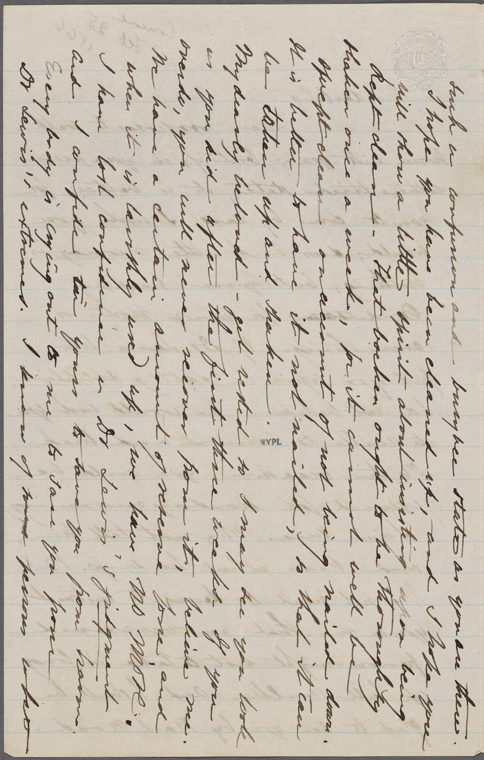 such a confusion and busy bee state as you are there.
I hope you have been cleaned up, and I hope you
will show a little spirit about insisting upon being
Kept clean - That ought to be thoroughly
shaken once a week, for it cannot well be
swept clean on account of not being nailed down.
It is better to have it not nailed, so that it can
be taken up and shaken.
My dearly beloved - get rested so I may see you look
as you did after the first three weeks. If you
overdo, you will never recover from it, believe me.
We have a certain amount of reserve force, and
when it is lavishly used up, we have NO MORE.
I have lost confidence in Dr Lewis's judgment
and I confide in yours to save you from harm.
Every body is crying out to me to save you from
Dr Lewis' extremes. I know of no person who
NYPL